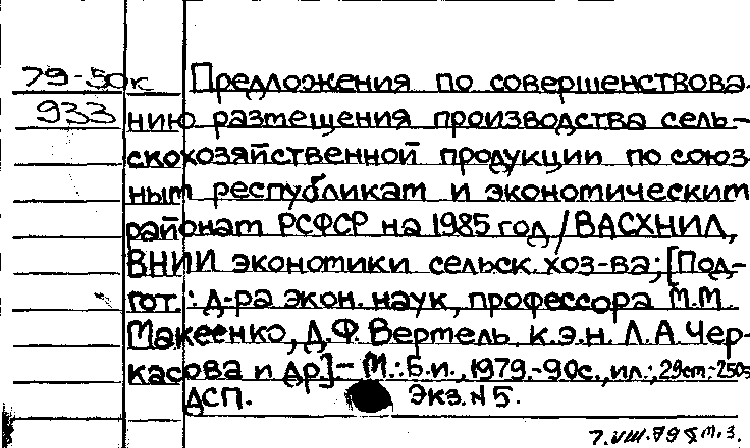 79-50к Предложения по совершенствова-
933 нию размещения производства сель-
скохозяйственной продукции по союз
ным республикам и экономическим
районам РСФСР на 1985 год / ВАСХНИЛ,
ВНИИ экономики сельск. хоз-ва; [Под-
гот.: д-ра экон. наук, профессора М.М.
Макеенко, Д.Ф. Вертель, к.э.н. Л.А. Чер-
касова и др.] - М.: Б.и., 1979.-90с., ил.; 29см.-250э
ДСП. Экз. N 5.
7.VIII.79